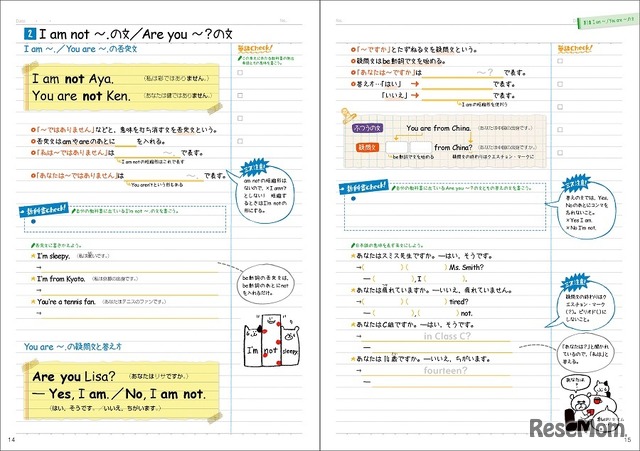 Date
No.
2 I am not ～.の文／Are you ～?の文
I am ～.／You are ～.の否定文
英語Check!
I am not Aya.
(私は彩ではありません。)
You are not Ken.
(あなたは健ではありません。)
「～ではありません」などと、意味を打ち消す文を否定文という。
否定文はamやareのあとに を入れる。
「私は～ではありません」は ～. で表す。
I am notの短縮形はこれで表す
「あなたは～ではありません」は ～. で表す。
You aren'tという形もある
ミス注意!
am notの短縮形はないので、×I amn't としない! 短縮するときはI'm notの形にする。
教科書Check!
自分の教科書に出ているI'm not ～.の文を書こう。
否定文に書きかえよう。
I'm sleepy. (私は眠いです。)
→
I'm from Kyoto. (私は京都の出身です。)
→
You're a tennis fan. (あなたはテニスのファンです。)
→
be動詞の否定文は、be動詞のあとにnotを入れるだけ。
I'm not sleepy
You are ～.の疑問文と答え方
Are you Lisa? (あなたはリサですか。)
— Yes, I am.／No, I am not.
(はい、そうです。／いいえ、ちがいます。)
14
No.
Date
英語Check!
「～ですか」とたずねる文を疑問文という。
疑問文はbe動詞で文を始める。
「あなたは～ですか」は ～? で表す。
答え方…「はい」 → で表す。
「いいえ」 → で表す。
I amの短縮形を使おう
ふつうの文
You are from China.
(あなたは中国の出身です。)
疑問文
from China?
(あなたは中国の出身ですか。)
be動詞で文を始める
疑問文の終わりはクエスチョン・マークに
ミス注意!
答えの文では、Yes, Noのあとにコンマを忘れないこと。
×Yes I am.
×No I'm not.
教科書Check!
自分の教科書に出ているAre you ～?の文とその答えの文を書こう。
日本語の意味を表す英文にしよう。
あなたはスミス先生ですか。―はい、そうです。
( )( ) Ms. Smith?
— ( ), I ( ).
あなたは疲れていますか。―いいえ、疲れていません。
( )( ) tired?
— ( ), ( ) not.
あなたはC組ですか。―はい、そうです。
in Class C?
—
あなたは14歳ですか。―いいえ、ちがいます。
fourteen?
—
ミス注意!
疑問文の終わりはクエスチョン・マーク(?)。ピリオド(.)にしないこと。
「あなたは？」と聞かれているので、「私は」と答える。
あなたは?
ReseMom.
15